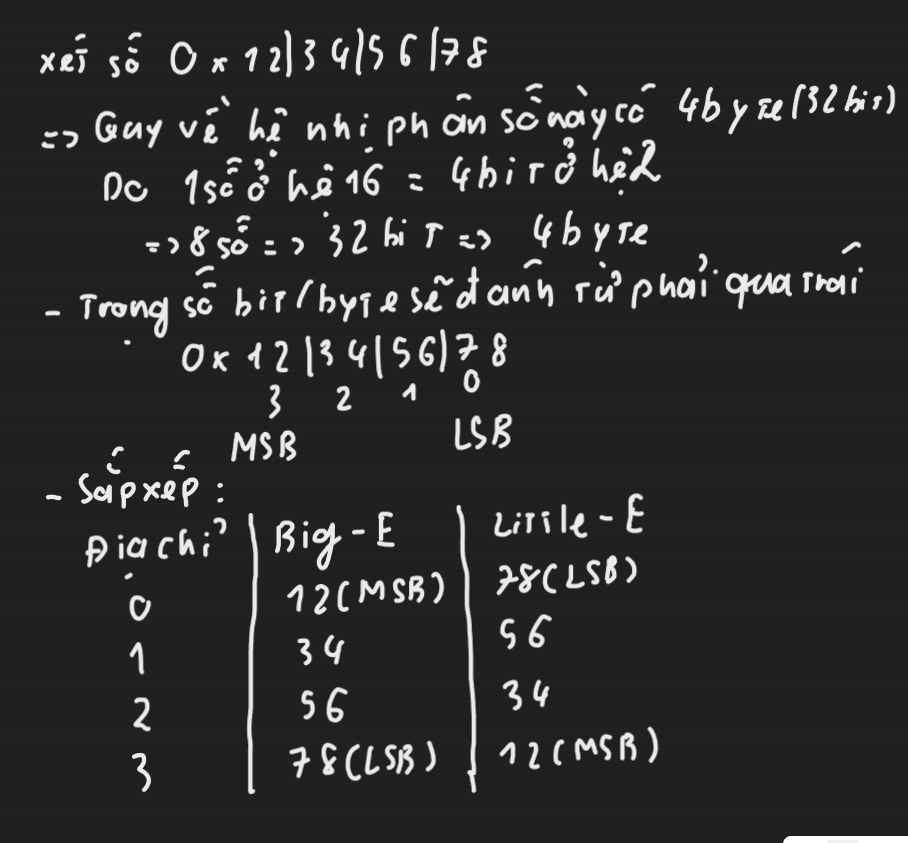 xét số 0x12|34|56|78
=> Quy về hệ nhị phân số này có 4byte(32bit)
Do 1số ở hệ 16 = 4bit ở hệ 2
=> 8 số => 32 bit => 4byte
- Trọng số bit/byte sẽ đánh từ phải qua trái
0x12|34|56|78
3 2 1 0
MSB LSB
- Sắp xếp:
Địa chỉ Big-E Little-E
0 12(MSB) 78(LSB)
1 34 56
2 56 34
3 78(LSB) 12(MSB)